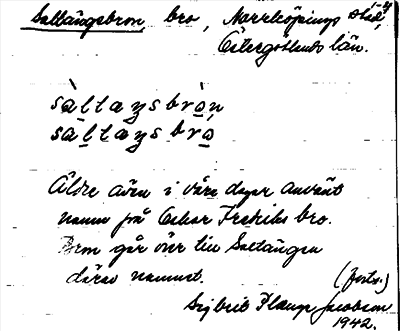 Saltängsbron, bro, Norrköpings stad,
Östergötlands län.
sàltaŋsbrò̱n
sa̱ltaŋsbró̱
Äldre även i våra dagar använt
namn på Oskar Fredriks bro.
Bron går över till Saltängen
därav namnet.
(forts.)
Sigbrit Plænge Jacobson
1942.